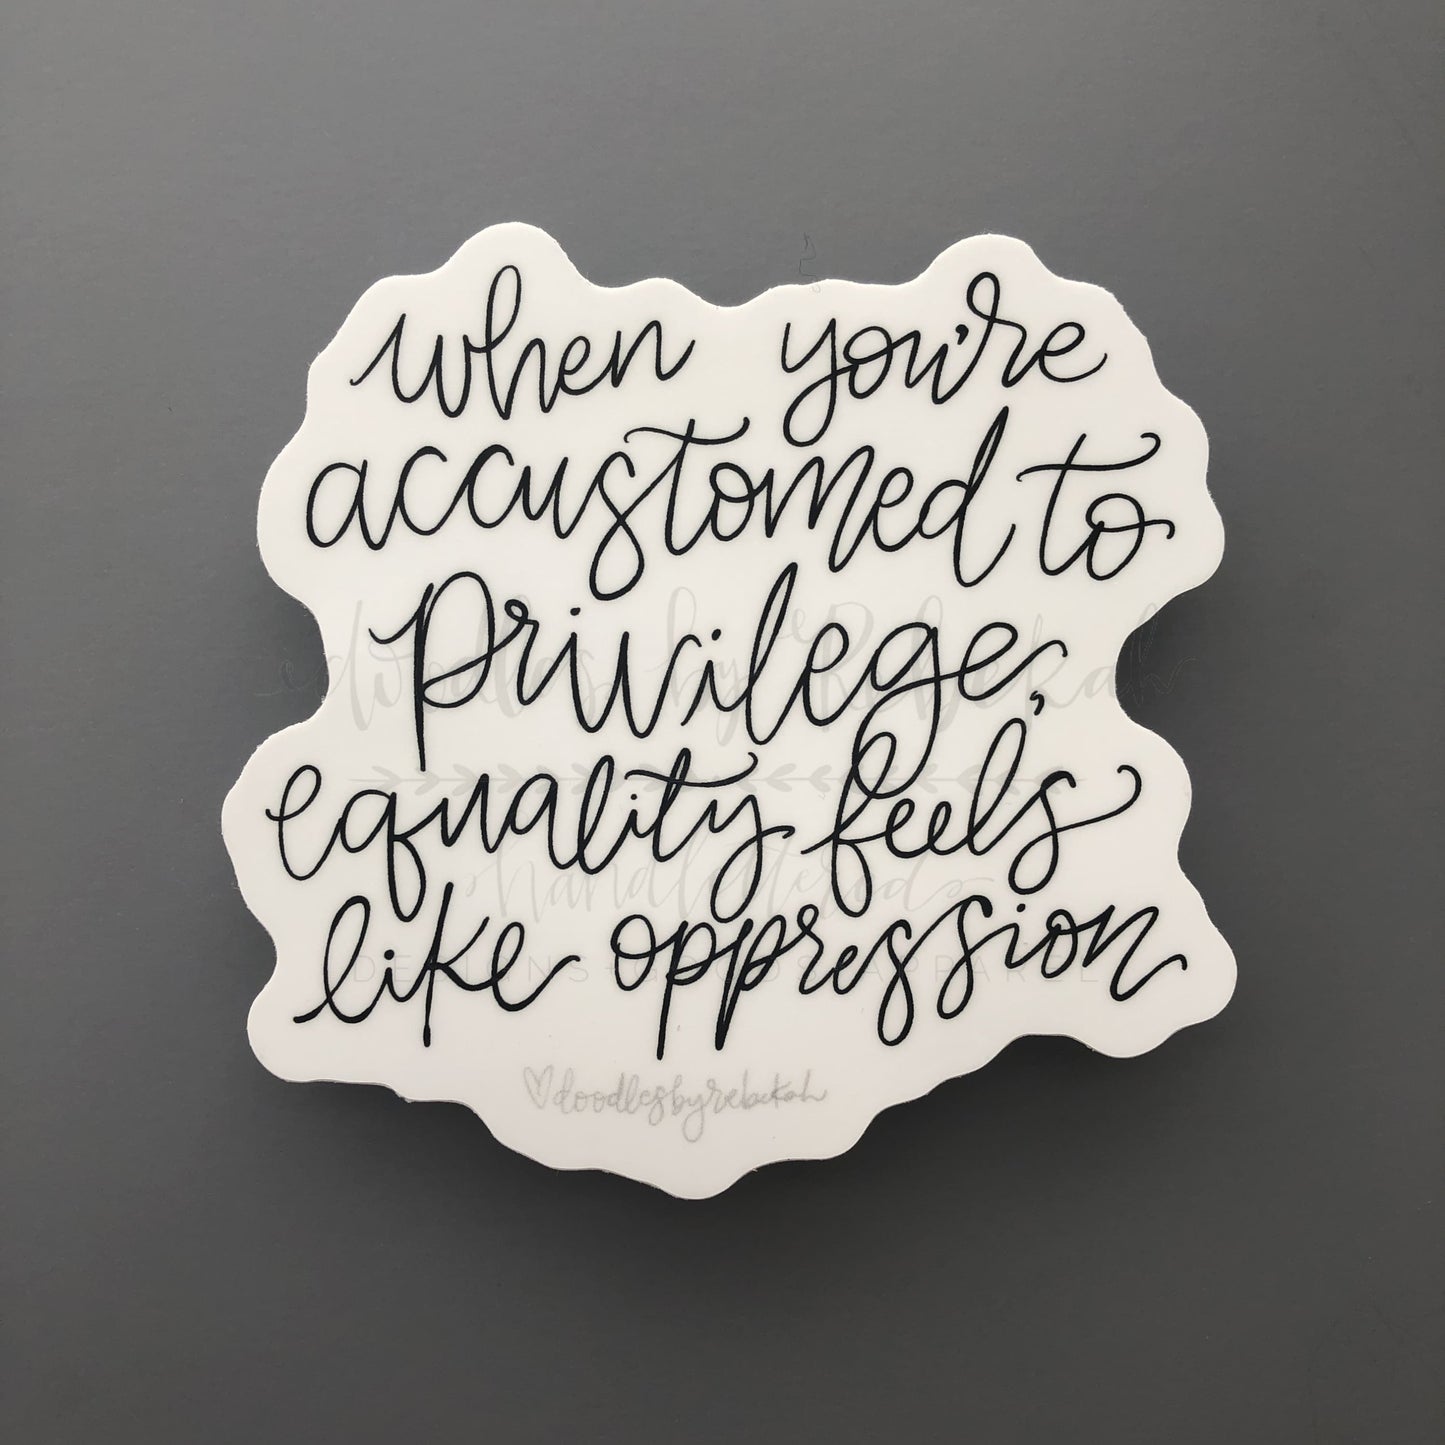 when you're
accustomed to
privilege,
equality feels
like oppression
doodles by Rebekah
handlettered
DESIGNS + GOODS + APPAREL
♡doodlesbyrebekah